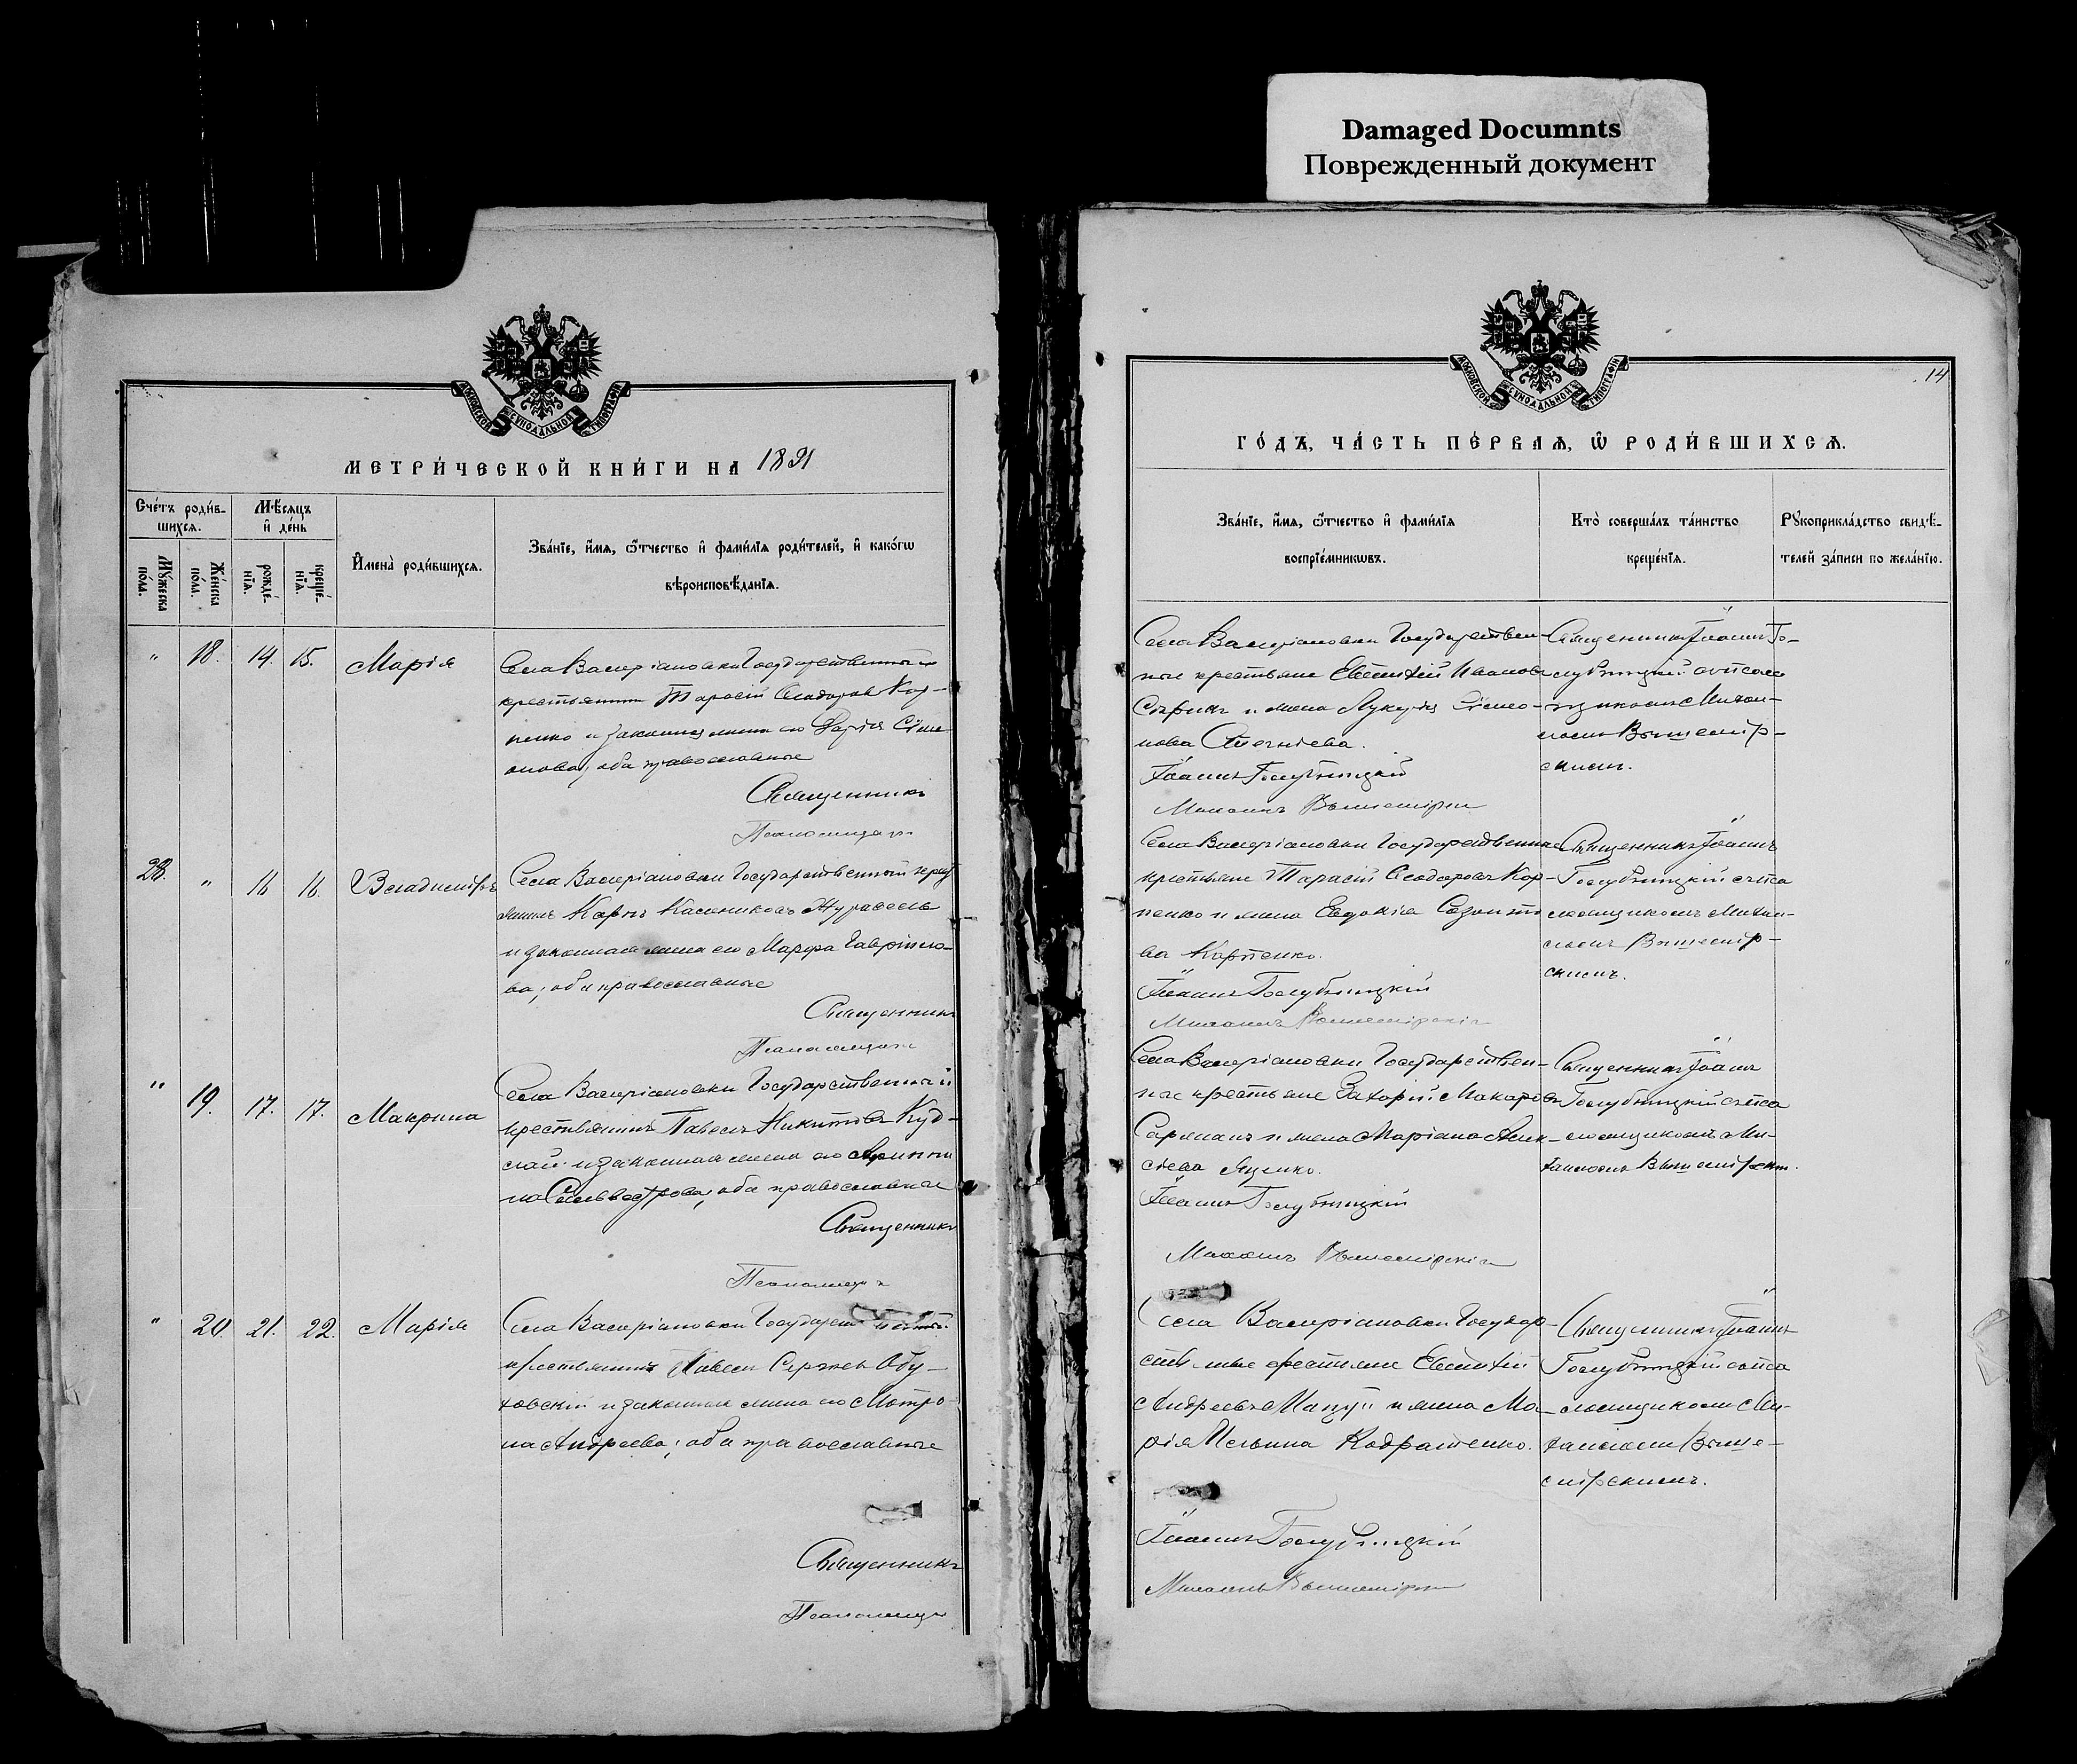 Damaged Documnts
Поврежденный документ
МОСКОВСКОЙ СѴНОДАЛЬНОЙ ТИПОГРАФІИ
МЕТРИ́ЧЕСКОЙ КНИ́ГИ НА 1891
Сче́тъ роди́в-
шихсѧ.
Мѣ́сѧцъ
и҆ де́нь
Мꙋ́жеска
по́ла.
Же́нска
по́ла.
рожде́-
нїѧ.
креще́-
нїѧ.
И҆мена̀ роди́вшихсѧ.
Зва́нїе, и҆́мѧ, ѻ҆́тчество и҆ фами́лїѧ роди́телей, и҆ како́гѡ
вѣроисповѣ́данїѧ.
" 18. 14. 15. Марія
Села Валеріановки Государственный
крестьянинъ Тарасій Ѳеодоровъ Кор-
пенко и законная жена его Дарія Симе-
онова, оба православные
Священникъ
Псаломщикъ
28. " 16 16. Владиміръ
Села Валеріановки Государственный крест
янинъ Карпъ Калениковъ Журавель
и законная жена его Марфа Гавріило-
ва, оба православные
Священникъ
Псаломщикъ
" 19. 17. 17. Макрина
Села Валеріановки Государственный
крестьянинъ Павелъ Никитовъ Куд-
законная жена его
на Сильвестрова, оба православные
Священникъ
Псаломщикъ
" 20. 21. 22. Марія
Села Валеріановки Государст
крестьянинъ Павелъ Сергіевъ Обу-
ховскій и законная жена его Мотро-
на Андреева, оба православные
Священникъ
Псаломщикъ
МОСКОВСКОЙ СѴНОДАЛЬНОЙ ТИПОГРАФІИ
14
ГО́ДЪ, ЧА́СТЬ ПЕ́РВАѦ, Ѽ РОДИ́ВШИХСѦ.
Зва́нїе, и҆́мѧ, ѻ҆́тчество и҆ фами́лїѧ
воспрїе́мникѡвъ.
Кто̀ соверша́лъ та́инство
креще́нїѧ.
Рꙋкоприкла́дство свидѣ́-
телей за́писи по жела́нїю.
Села Валеріановки Государствен-
ные крестьяне Евстафій Ивановъ
и жена Лукерія Симео-
нова
Іоаннъ Голубницкій
Михаилъ Вышемірскій
Священникъ Іоаннъ Го-
лубницкій съ псалом
щикомъ Михаи-
ломъ Вышемір-
скимъ.
Села Валеріановки Государственные
крестьяне Тарасій Ѳеодоровъ Кор-
пенко и жена Евдокія Созонто
ва Корпенко.
Іоаннъ Голубницкій
Михаилъ Вышемірскій
Священникъ Іоаннъ
Голубницкій съ пса
ломщикомъ Михаи-
ломъ Вышемір-
скимъ.
Села Валеріановки Государствен-
ные крестьяне Захарій Макаровъ
и жена Маріана Алек-
сѣева Яценко.
Іоаннъ Голубницкій
Михаилъ Вышемірскій
Священникъ Іоаннъ
Голубницкій съ пса
ломщикомъ Ми-
хаиломъ Вышемірским.
Села Валеріановки Государ-
ственные крестьяне Евстафій
Андреевъ и жена Ма-
рія
Іоаннъ Голубницкій
Михаилъ Вышемірскій
Священникъ Іоаннъ
Голубницкій съ пса
ломщикомъ Ми-
хаиломъ Выше-
мірскимъ.